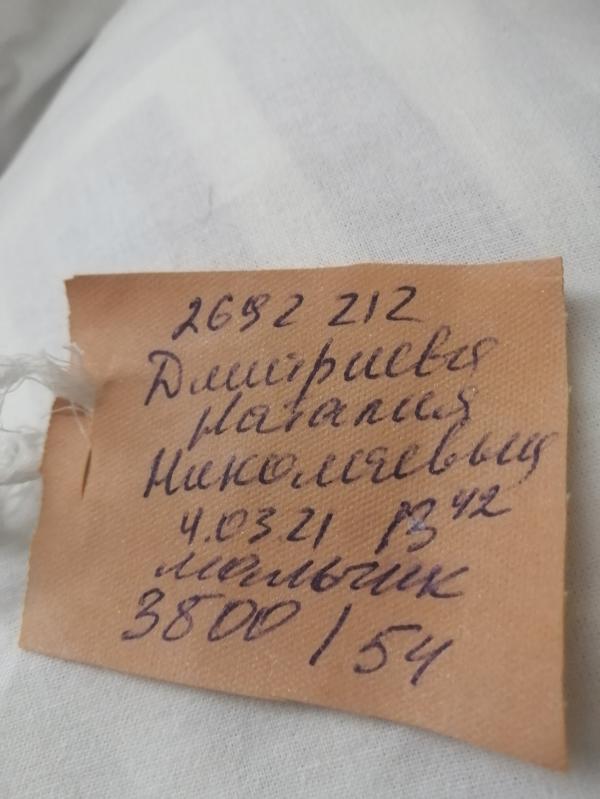 2692 212
Дмитриева
Наталия
Николаевна
4.03.21 13 42
мальчик
3800 / 54